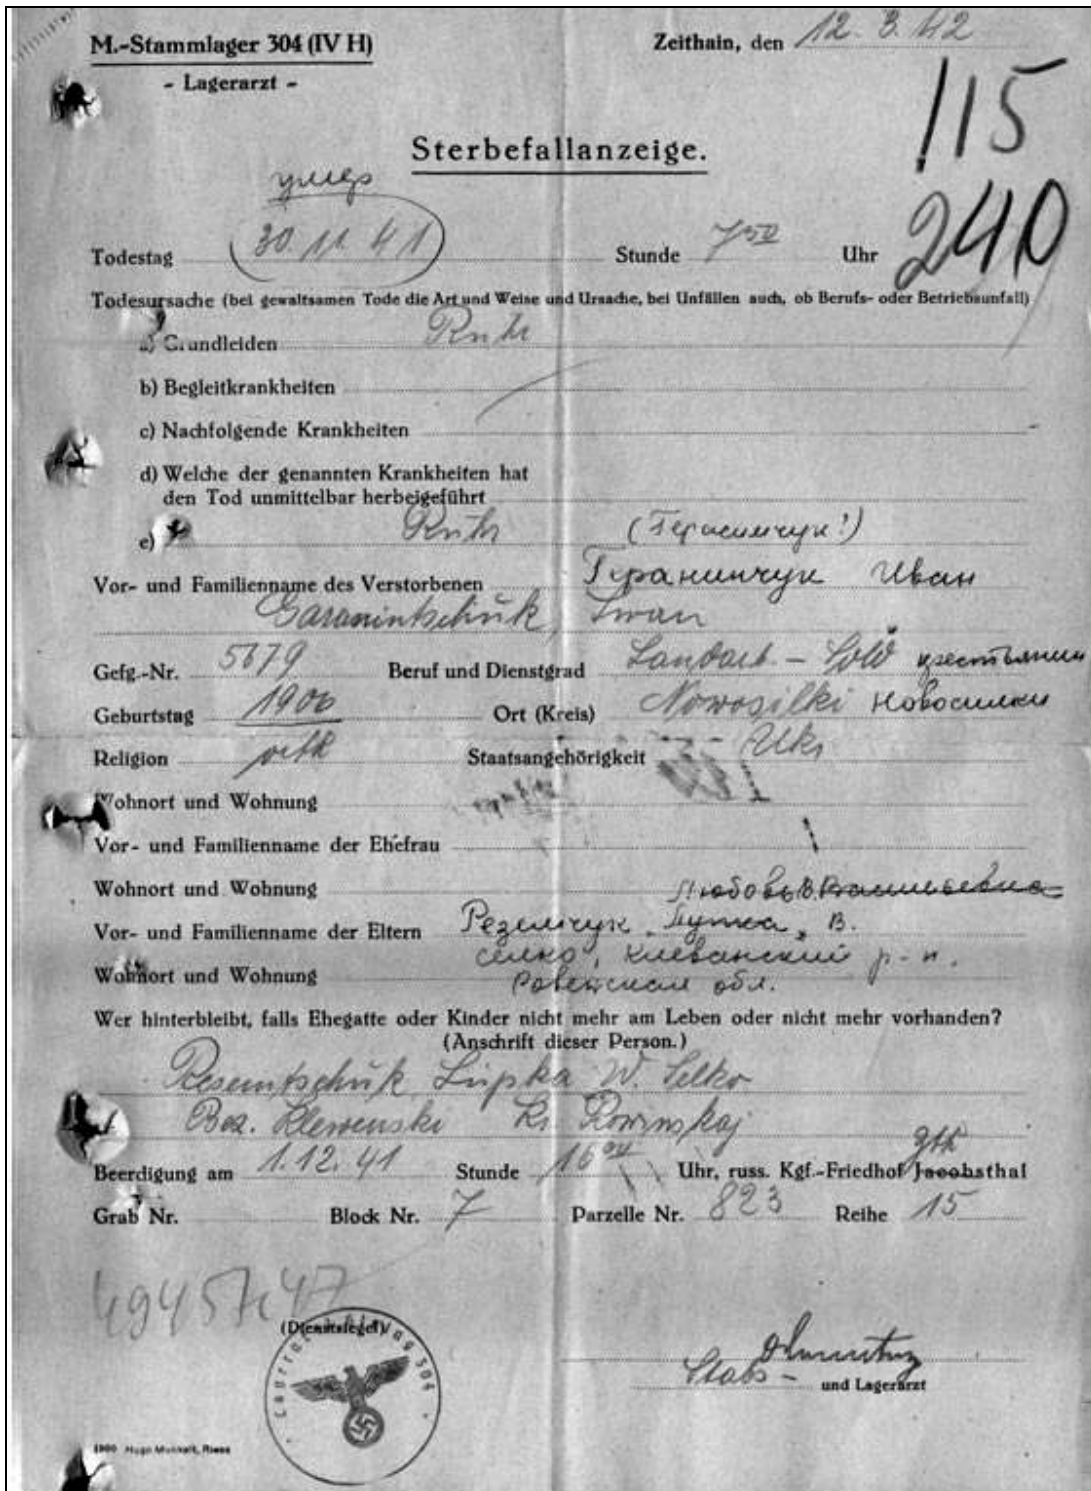 M.-Stammlager 304 (IV H) Zeithain, den 12. 3. 42
- Lagerarzt -
115
Sterbefallanzeige.
умер
240
Todestag 30. 11. 41 Stunde 7 50 Uhr
Todesursache (bei gewaltsamen Tode die Art und Weise und Ursache, bei Unfällen auch, ob Berufs- oder Betriebsunfall)
a) Grundleiden Ruhr
b) Begleitkrankheiten
c) Nachfolgende Krankheiten
d) Welche der genannten Krankheiten hat
den Tod unmittelbar herbeigeführt
e) Ruhr (Герасимчук!)
Vor- und Familienname des Verstorbenen Геранинчук Иван
Garanintschuk, Iwan
Gefg.-Nr. 5679 Beruf und Dienstgrad Landarb. - Sold крестьянин
Geburtstag 1906 Ort (Kreis) Nowosilki Новосилки
Religion orth Staatsangehörigkeit Ukr
Wohnort und Wohnung
Vor- und Familienname der Ehefrau
Wohnort und Wohnung Любовь В. Васильевна
Vor- und Familienname der Eltern Реземчук В.
Wohnort und Wohnung селко, Клеванский р-н.
Ровенская обл.
Wer hinterbleibt, falls Ehegatte oder Kinder nicht mehr am Leben oder nicht mehr vorhanden?
(Anschrift dieser Person.)
Resemtschuk, Lupka W. Selko
Bez. Klewenski Kr. Rowinskaj
Beerdigung am 1. 12. 41 Stunde 16 Uhr, russ. Kgf.-Friedhof Jacobsthal
Grab Nr. Block Nr. 7 Parzelle Nr. 823 Reihe 15
(Dienstsiegel)
304
Stabs - und Lagerarzt
1960 Hugo Munkelt, Riesa